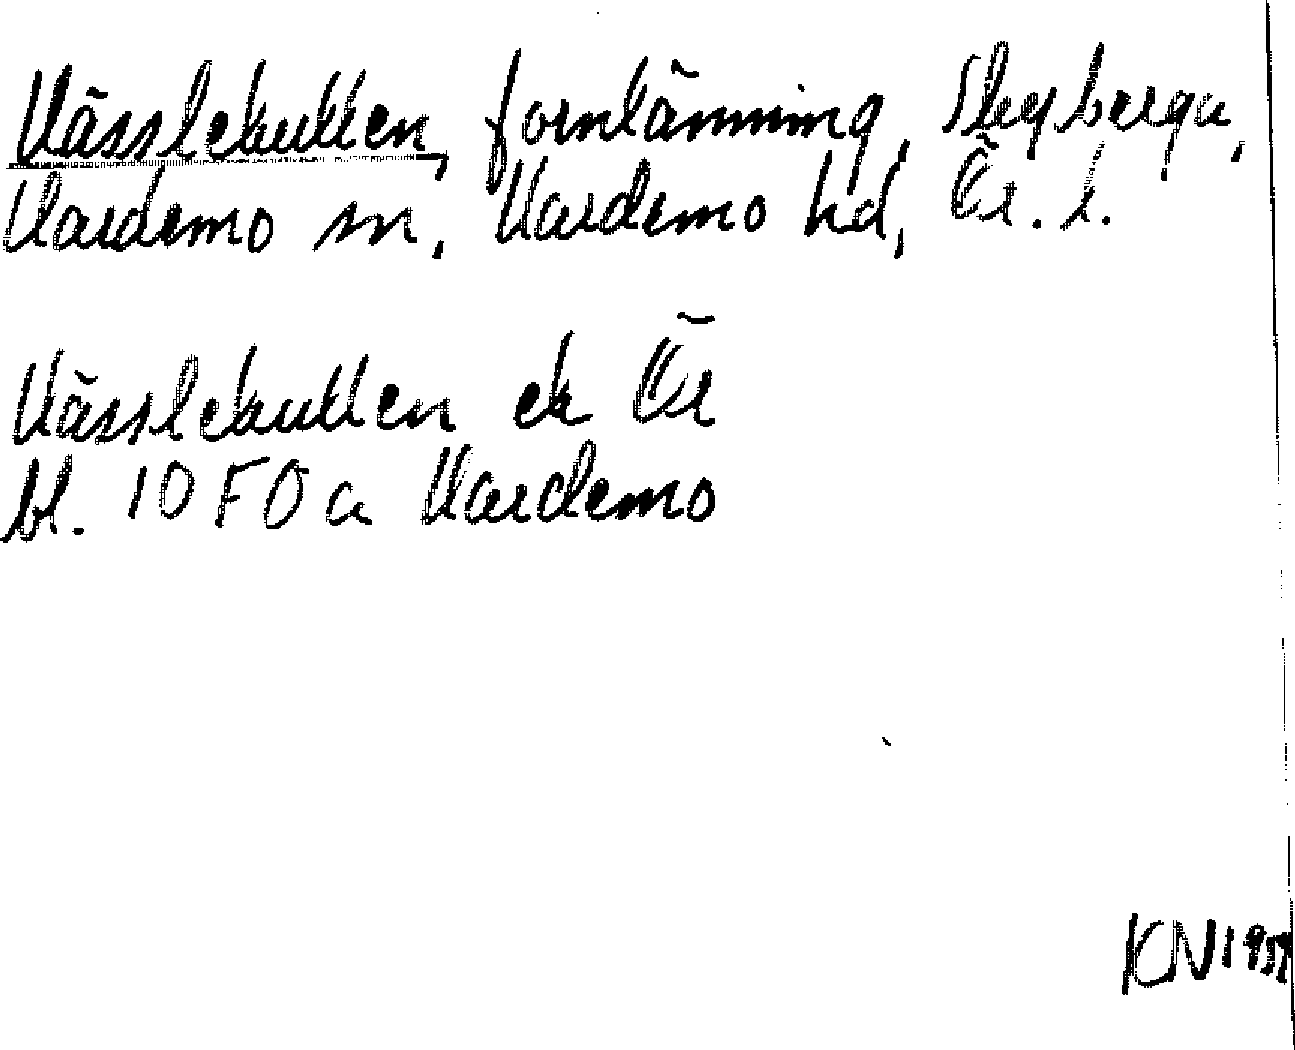 Hässlekullen, fornlämning, Skyberga,
Hardemo sn, Hardemo hd, Ör. l.
Hässlekullen ek Ör
bl. 10 F 0 a Hardemo
KN